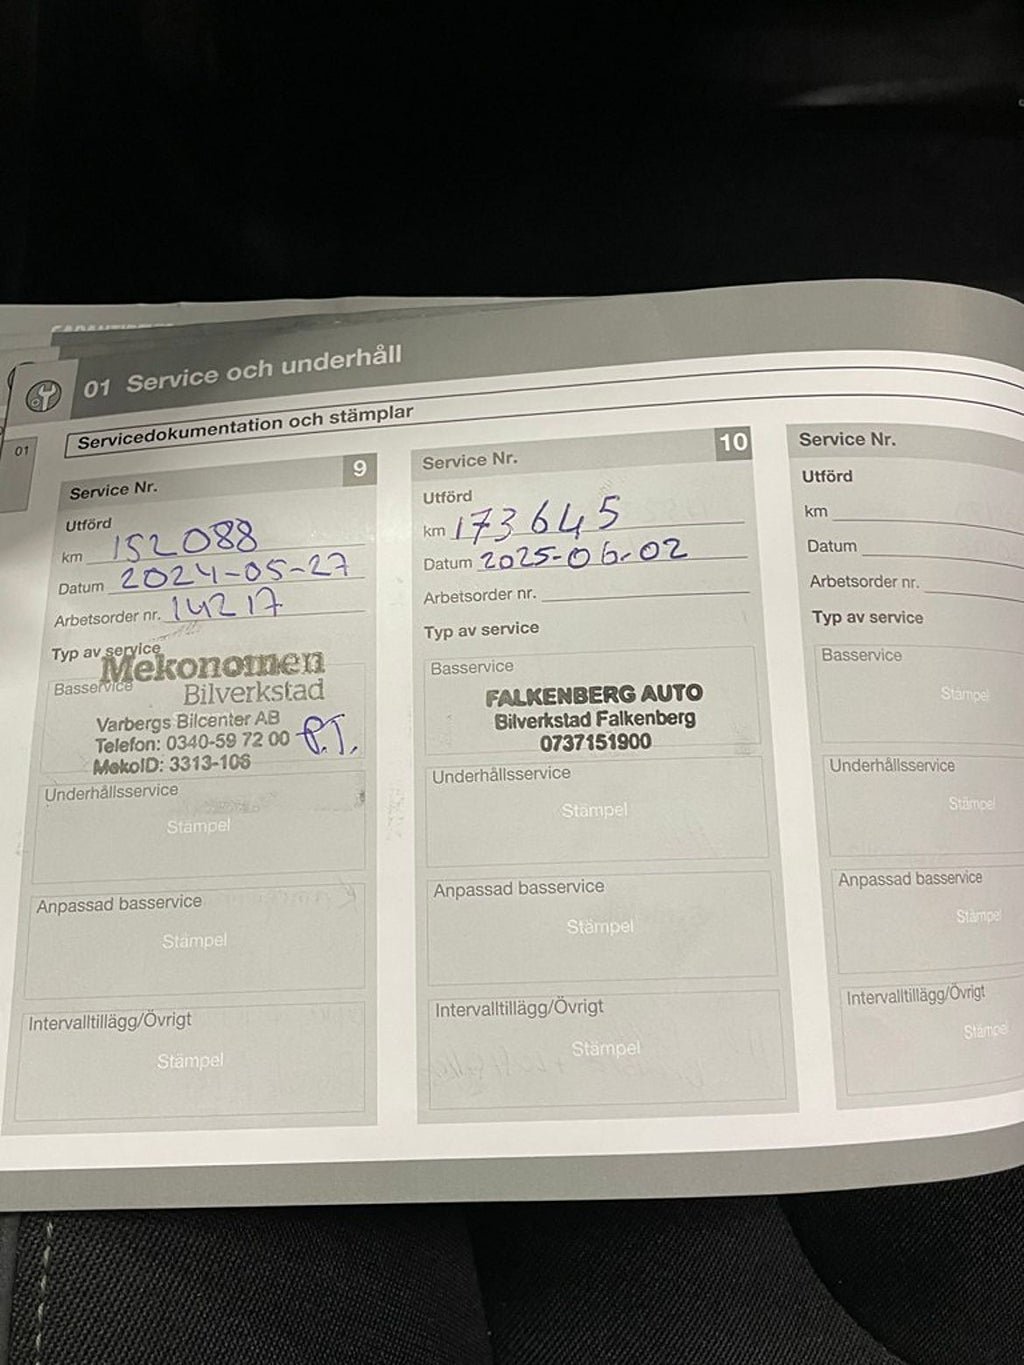 01 Service och underhåll
01
Servicedokumentation och stämplar
Service Nr. 9
Utförd
km 152088
Datum 2024-05-27
Arbetsorder nr. 14217
Typ av service
Basservice
Mekonomen
Bilverkstad
Varbergs Bilcenter AB
Telefon: 0340-59 72 00
MekoID: 3313-106
P.T.
Underhållsservice
Stämpel
Anpassad basservice
Stämpel
Intervalltillägg/Övrigt
Stämpel
Service Nr. 10
Utförd
km 173645
Datum 2025-06-02
Arbetsorder nr.
Typ av service
Basservice
FALKENBERG AUTO
Bilverkstad Falkenberg
0737151900
Underhållsservice
Stämpel
Anpassad basservice
Stämpel
Intervalltillägg/Övrigt
Stämpel
Service Nr.
Utförd
km
Datum
Arbetsorder nr.
Typ av service
Basservice
Stämpel
Underhållsservice
Stämpel
Anpassad basservice
Stämpel
Intervalltillägg/Övrigt
Stämpel